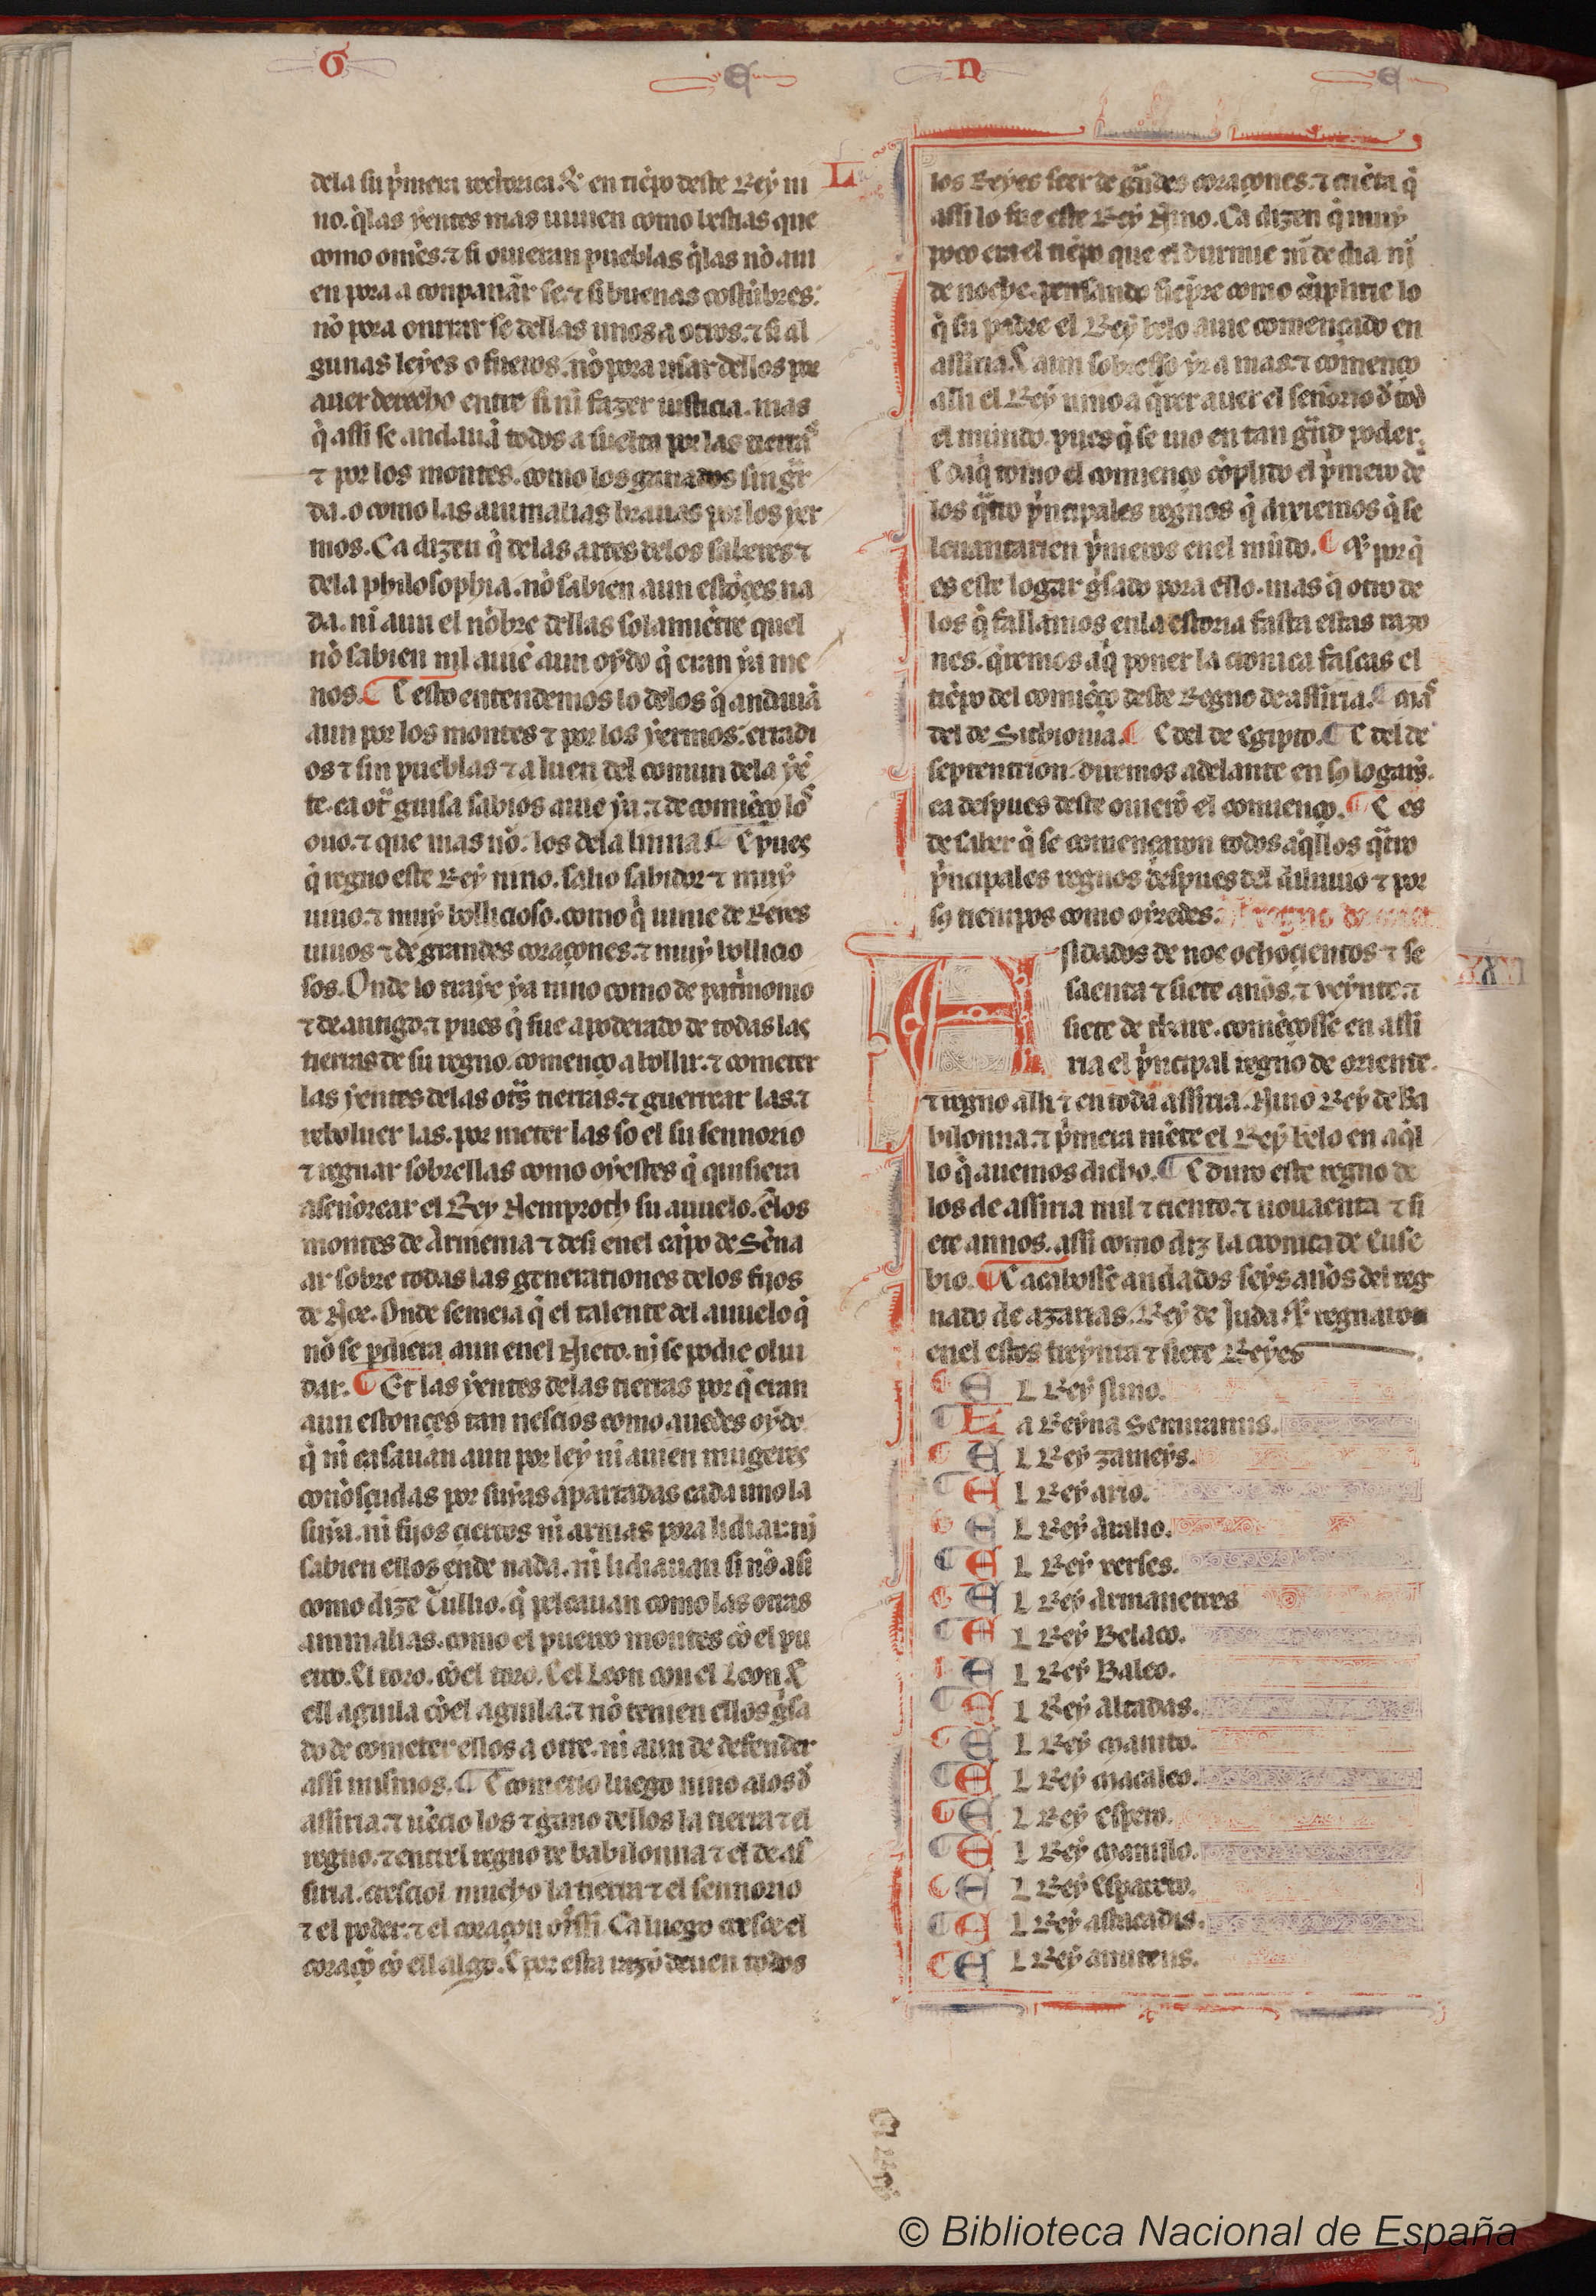 G E N E
dela su p̍mera rectorica. ⁊ en tiẽpo deste Rey ni
no. q̃ las yentes mas uiuien como bestias que
como om̃es. ⁊ si ouieran pueblas q̃ las nõ aui
en pora aconpannar se. ⁊ si buenas costũbres.
nõ pora onrrar se dellas unos a otros. ⁊ si al
gunas leyes o fueros. nõ pora usar dellos por
auer derecho entre si ni fazer iusticia. mas
q̃ assi se andauã todos a suelta por las tierras
⁊ por los montes. como los ganados sin gr̃
da. o como las animalias brauas por los yer
mos. Ca dizen q̃ delas artes delos saberes ⁊
dela philosophia. nõ sabien aun estõçes na
da. ni aun el nõbre dellas solamiẽtre quel
nõ sabien nil auiẽ aun oydo q̃ eran ya me
nos. ¶ E esto entendemos lo delos q̃ andauã
aun por los montes ⁊ por los yermos. erradi
os ⁊ sin pueblas ⁊ a luen del comun dela yẽ
te. ca otr̃ guisa sabios auie ya. ⁊ de comiẽço los
ouo. ⁊ que mas nõ. los dela linna. ¶ E pues
q̃ regno este Rey nino. salio sabidor ⁊ muy
uiuo. ⁊ muy bollicioso. como q̃ uinie de Reyes
uiuos ⁊ de grandes coraçones. ⁊ muy bollicio
sos. Onde lo traye ya nino como de patrimonio
⁊ de antigo. ⁊ pues q̃ fue apoderado de todas las
tierras de su regno. començo a bollir. ⁊ cometer
las yentes delas otr̃s tierras. ⁊ guerrear las. ⁊
reboluer las. por meter las so el su sennorio
⁊ regnar sobrellas como oyestes q̃ quisiera
asennorear el Rey Nemproth su auuelo. ẽlos
montes de Armenia ⁊ desi enel cãpo de Sẽna
ar sobre todas las generationes delos fijos
de Noe. Onde semeia q̃ el talente del auuelo q̃
nõ se p̱diera aun enel Nieto. nj se podie olui
dar. ¶ Et las yentes delas tierras por q̃ eran
aun estonçes tan nescios como auedes oydo
q̃ ni casauan aun por ley ni auien mugeres
conosçudas por suyas apartadas cada uno la
suya. ni fijos ciertos ni armas pora lidiar. nj
sabien ellos ende nada. ni lidiauan si nõ asi
como dize Tullio. q̃ peleauan como las otras
animalias. como el puerco montes cõ el pu
erco. El toro. cõel toro. E el Leon con el Leon. E
ell aguila cõel aguila. ⁊ nõ tenien ellos g̍sa
do de cometer ellos a otre. ni aun de defender
assi mismos. ¶ E cometio luego nino alos d̃
assiria. ⁊ uẽcio los ⁊ gano dellos la tierra ⁊ el
regno. ⁊ entrel regno de babilonna ⁊ el de as
siria. cresciol mucho la tierra ⁊ el sennorio
⁊ el poder. ⁊ el coraçon otrossi. Ca luego cresce el
coraçõ cõ ell algo. E por esta razõ deuen todos
los Reyes seer de gr̃ndes coraçones. ⁊ cuẽta q̃
assi lo fue este Rey Nino. Ca dizen q̃ muy
poco era el tiẽpo que el durmie ni de dia nj
de noche. pensando siẽpre como cũplirie lo
q̃ su padre el Rey belo auie començado en
assiria. E aun sobresso yr a mas. ⁊ cõmenço
assi el Rey nino a q̃rer auer el señorio d̃ tod
el mundo. pues q̃ se uio en tan gr̃nd poder.
E daq̃ tomo el comienço cõplido el p̍mero de
los q̃tro p̍ncipales regnos q̃ dixiemos q̃ se
leuantarien p̍meros enel mũdo. ¶ E por q̃
es este logar g̍sado pora esto. mas q̃ otro de
los q̃ fallamos enla estoria fasta estas razo
nes. q̃remos aq̃ poner la cronica fascas el
tiẽpo del comiẽço deste Regno de assiria. ¶ mas
del de Sitionia. ¶ E del de Egipto. ¶ E del de
septentrion. diremos adelante en sus logares.
ca despues deste ouierõ el comienço. ¶ E es
de saber q̃ se començaron todos aq̃llos q̃tro
p̍ncipales regnos despues del diluuio ⁊ por
sus tiempos como oyredes.
A ndados de noe ochoçientos ⁊ se
saenta ⁊ siete anõs. ⁊ veynte. ⁊
siete de thare. comẽçosse en assi
ria el p̍ncipal regno de oriente.
⁊ regno alli ⁊ en toda assiria. Nino Rey de Ba
bilonna. ⁊ p̍mera miẽte el Rey belo en aq̃l
lo q̃ auemos dicho. ¶ E duro este regno de
los de assiria mil ⁊ ciento. ⁊ nouaenta ⁊ si
ete annos. assi como diz la cronica de Euse
bio. ¶ E acabosse andados seys anõs del reg
nado de azarias. Rey de Juda. E regnaron
enel estos treynta ⁊ siete Reyes
¶ E L Rey nino.
¶ L a Reyna Semiramis.
¶ E L Rey zameys.
¶ E L Rey ario.
¶ E L Rey aralio.
¶ E L Rey xerses.
¶ E L Rey Armanetres
¶ E L Rey Belaco.
¶ E L Rey Baleo.
¶ E L Rey altadas.
¶ E L Rey manito.
¶ E L Rey macaleo.
¶ E L Rey Espero.
¶ E L Rey manulo.
¶ E L Rey Esparero.
¶ E L Rey astacadis.
¶ E L Rey amintus.
© Biblioteca Nacional de España